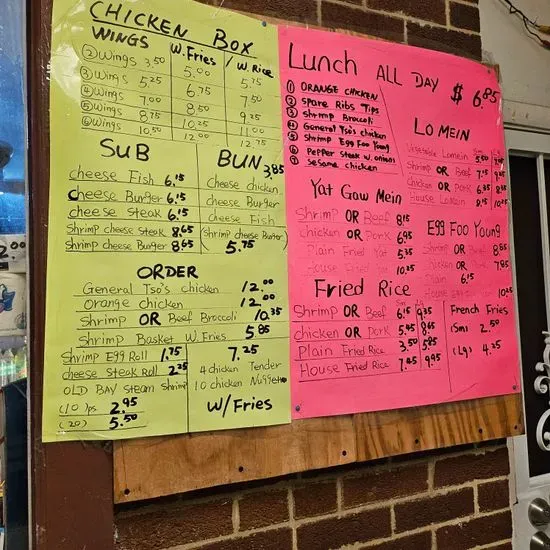 CHICKEN BOX
WINGS W. Fries / W. Rice
② Wings 3.50 5.00 5.75
③ Wings 5.25 6.75 7.50
④ Wings 7.00 8.50 9.25
⑤ Wings 8.75 10.25 11.00
⑥ Wings 10.50 12.00 12.75
SUB
cheese Fish 6.15
cheese Burger 6.15
cheese steak 6.15
Shrimp cheese steak 8.65
Shrimp cheese Burger 8.65
BUN 3.85
cheese chicken
cheese Burger
cheese Fish
(Shrimp cheese Burger)
5.75
ORDER
General Tso's chicken 12.00
Orange chicken 12.00
Shrimp OR Beef Broccoli 10.35
Shrimp Basket W. Fries 5.85
Shrimp Egg Roll 1.75
cheese steak Roll 2.25
OLD BAY STEAM Shrimp
(10) ps 2.95
(20) 5.50
7.25
4 chicken Tender
10 chicken Nugget
W/ Fries
Lunch ALL DAY $6.85
① ORANGE CHICKEN
② Spare Ribs Tips
③ Shrimp Broccoli
④ General Tso's chicken
⑤ Shrimp Egg Foo Young
⑥ Pepper Steak W. onions
⑦ Sesame chicken
LO MEIN
Vegetable Lomein 5.50
Shrimp OR Beef 7.15
Chicken OR Pork 6.35
House Lomein 8.15 10.25
Yat Gaw Mein
Shrimp OR Beef 8.15
Chicken OR Pork 6.95
Plain Fried Yat 5.35
House 10.25
Egg Foo Young
Shrimp OR Beef 8.85
Chicken OR 7.85
Plain 6.15
House Egg 10.25
Fried Rice
Sm Lg
Shrimp OR Beef 6.15 9.35
chicken OR Pork 5.95 8.65
Plain Fried Rice 3.50 5.85
House Fried Rice 7.25 9.95
French Fries
(Sm) 2.50
(Lg) 4.25